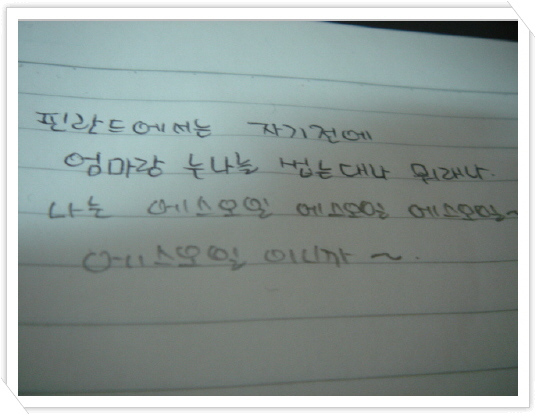 핀란드에서는 자기전에
엄마랑 누나늘 씹는대나 뭐래나.
나는 에스오일 에스오일 에스오일~
에스오일 이니까 ~.